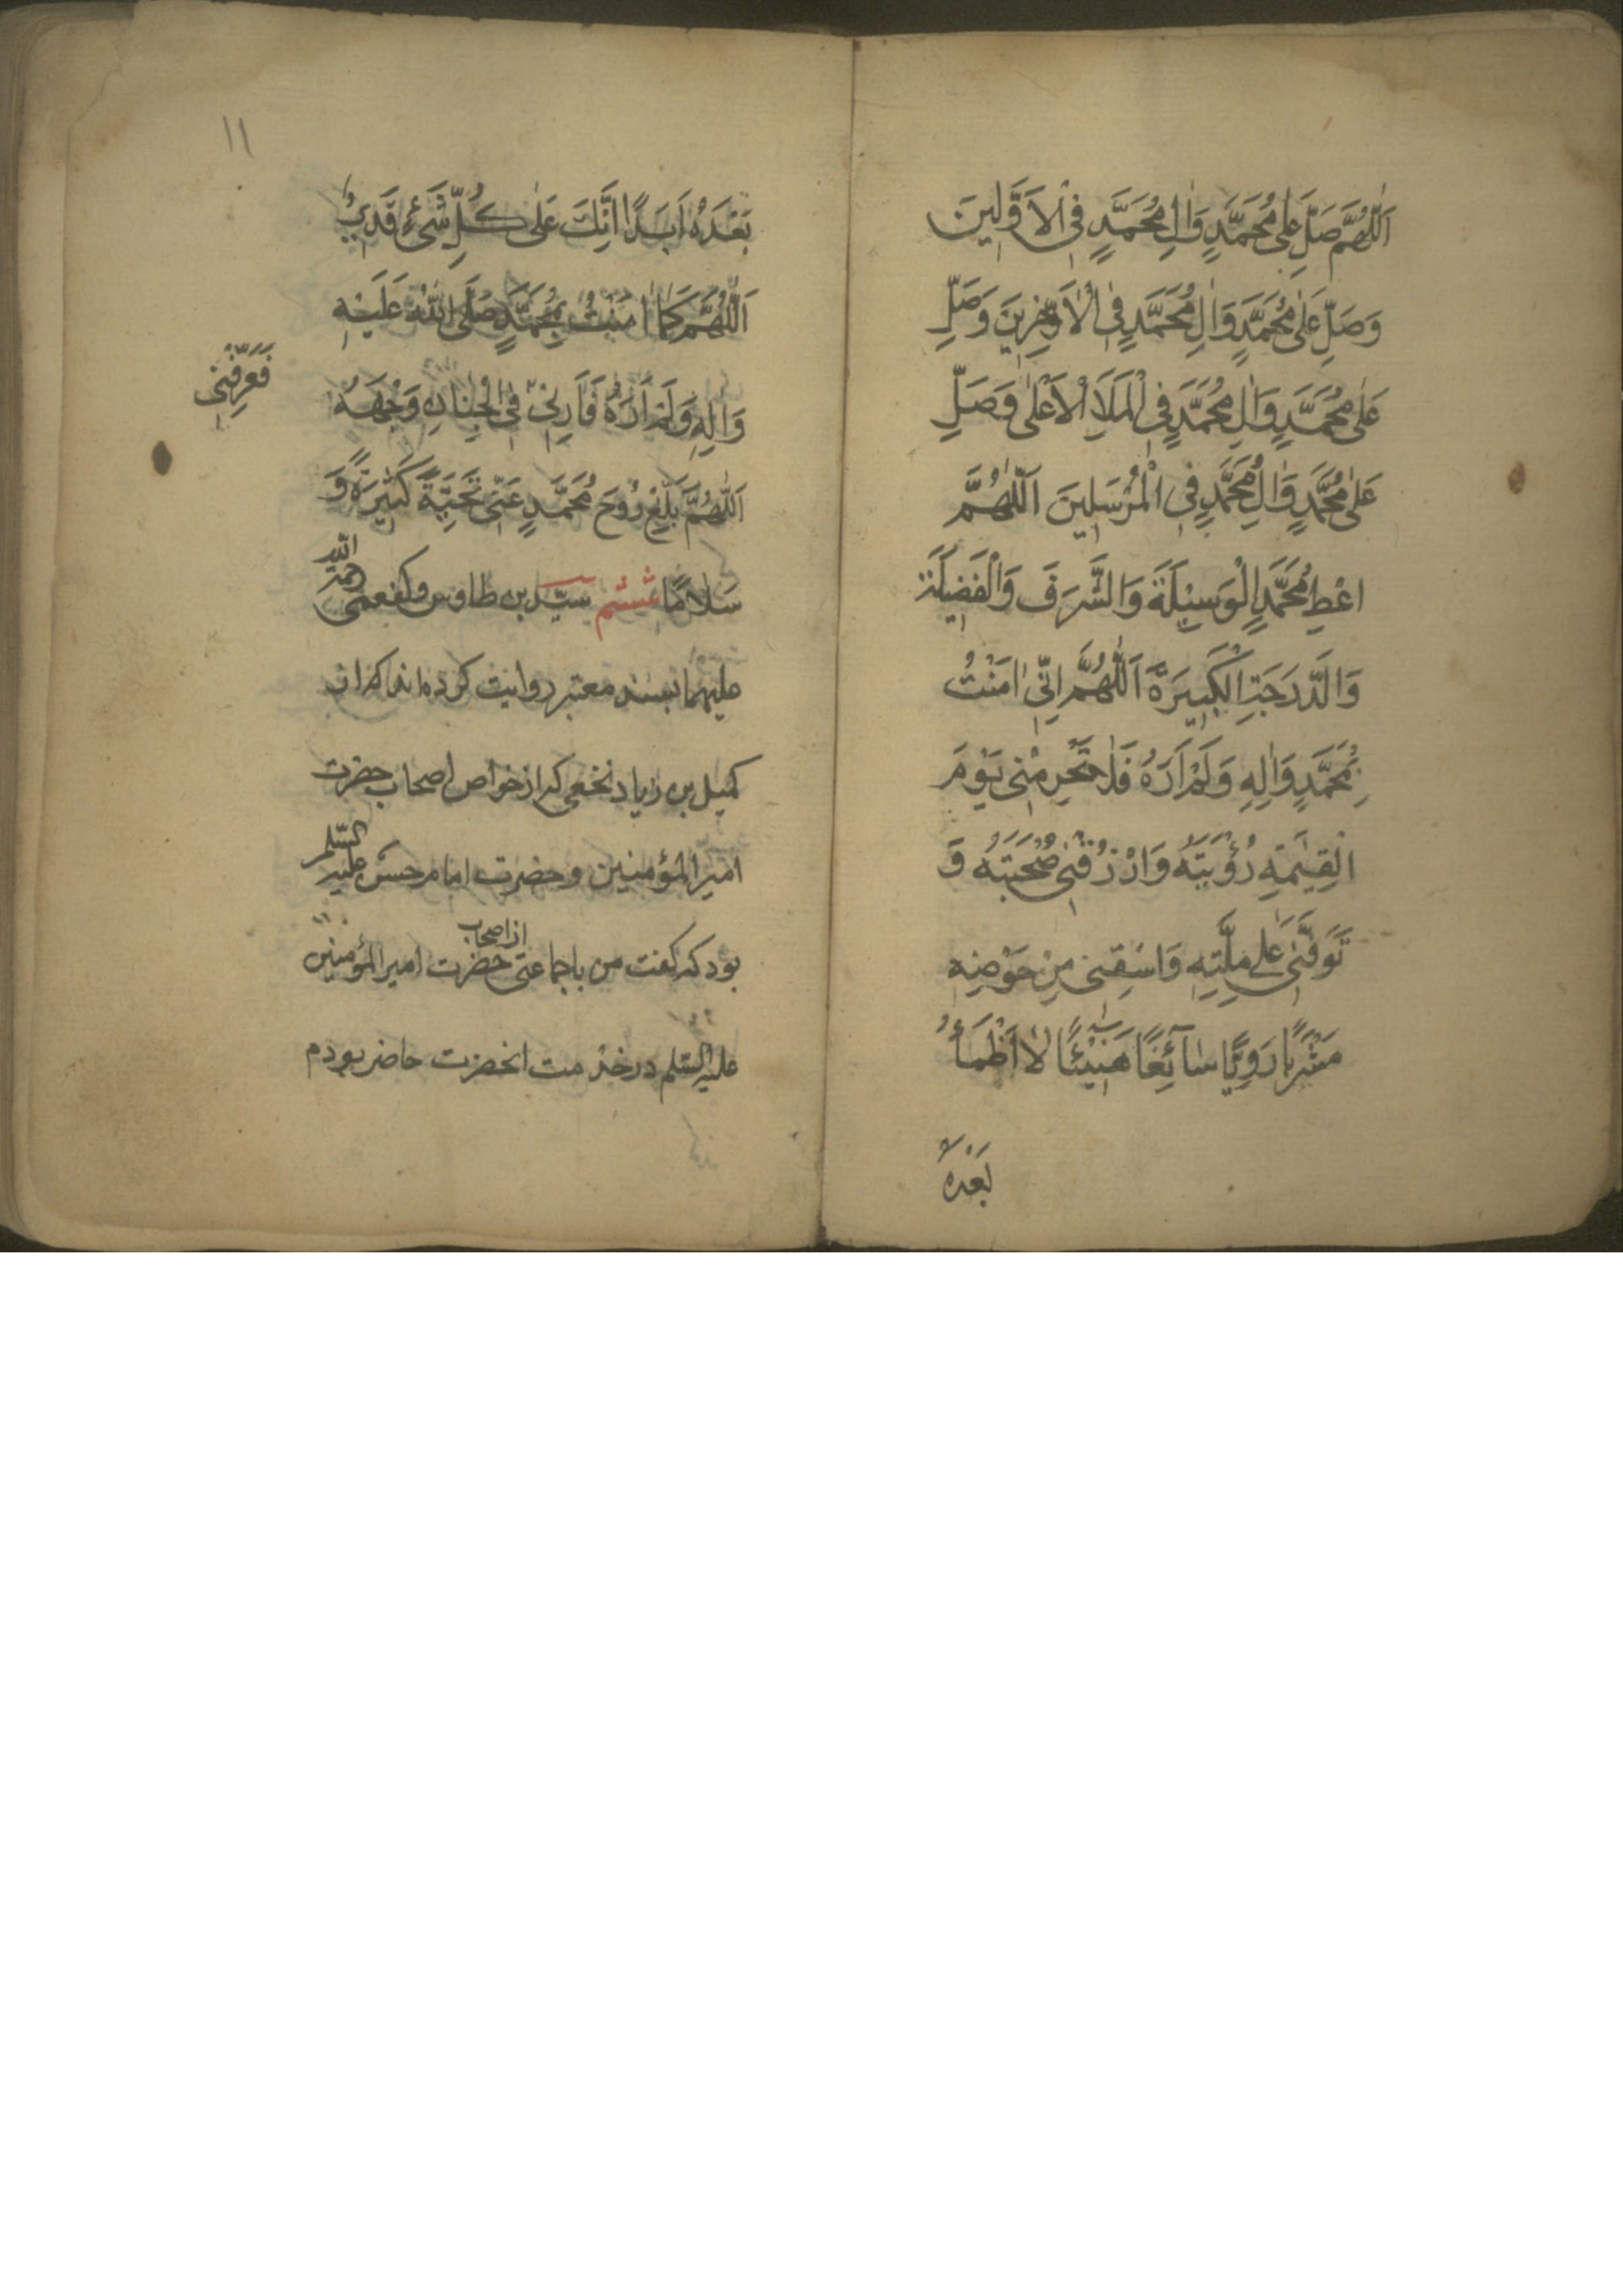 اَللّٰهُمَّ صَلِّ عَلٰى مُحَمَّدٍ وَاٰلِ مُحَمَّدٍ فِى الْاَوَّلِينَ
وَصَلِّ عَلٰى مُحَمَّدٍ وَاٰلِ مُحَمَّدٍ فِى الْاٰخِرِينَ وَصَلِّ
عَلٰى مُحَمَّدٍ وَاٰلِ مُحَمَّدٍ فِى الْمَلَاِ الْاَعْلٰى وَصَلِّ
عَلٰى مُحَمَّدٍ وَاٰلِ مُحَمَّدٍ فِى الْمُرْسَلِينَ اَللّٰهُمَّ
اعْطِ مُحَمَّدٍ الْوَسِيْلَةَ وَالشَّرَفَ وَالْفَضِيلَةَ
وَالدَّرَجَةِ الْكَبِيرَةَ اَللّٰهُمَّ اِنِّى اٰمَنْتُ
بِمُحَمَّدٍ وَاٰلِهِ وَلَمْ اَرَهُ فَلَا تَحْرِمْنِى يَوْمَ
الْقِيٰمَةِ رُؤْيَتَهُ وَارْزُقْنِى صُحْبَتَهُ وَ
تَوَفَّنِى عَلٰى مِلَّتِهِ وَاسْقِنِى مِنْ حَوْضِهِ
مَشْرَبًا رَوِيًّا سَآئِغًا هَنِيْئًا لَا اَظْمَأُ
بَعْدَهُ
١١
بَعْدَهُ اَبَدًا اِنَّكَ عَلٰى كُلِّ شَىْءٍ قَدِيرٌ
اَللّٰهُمَّ كَمَا اٰمَنْتُ بِمُحَمَّدٍ صَلَّى اللّٰهُ عَلَيْهِ
وَاٰلِهِ وَلَمْ اَرَهُ فَاَرِنِىْ فِى الْجِنَانِ وَجْهَهُ
فَعَرِّفْنِى
اَللّٰهُمَّ بَلِّغْ رُوْحَ مُحَمَّدٍ عَنِّى تَحِيَّةً كَثِيرَةً وَ
سَلَامًا ششم سيّد بن طاوس و كفعمى رحمة الله
عليهما بسند معتبر روايت كرده اند كه از
كميل بن زياد نخعى كه از خواص اصحاب حضرت
امير المؤمنين و حضرت امام حسن عليه السّلم
بود كه گفت من با جماعتى از اصحاب حضرت امير المؤمنين
عليه السّلم در خدمت انحضرت حاضر بودم